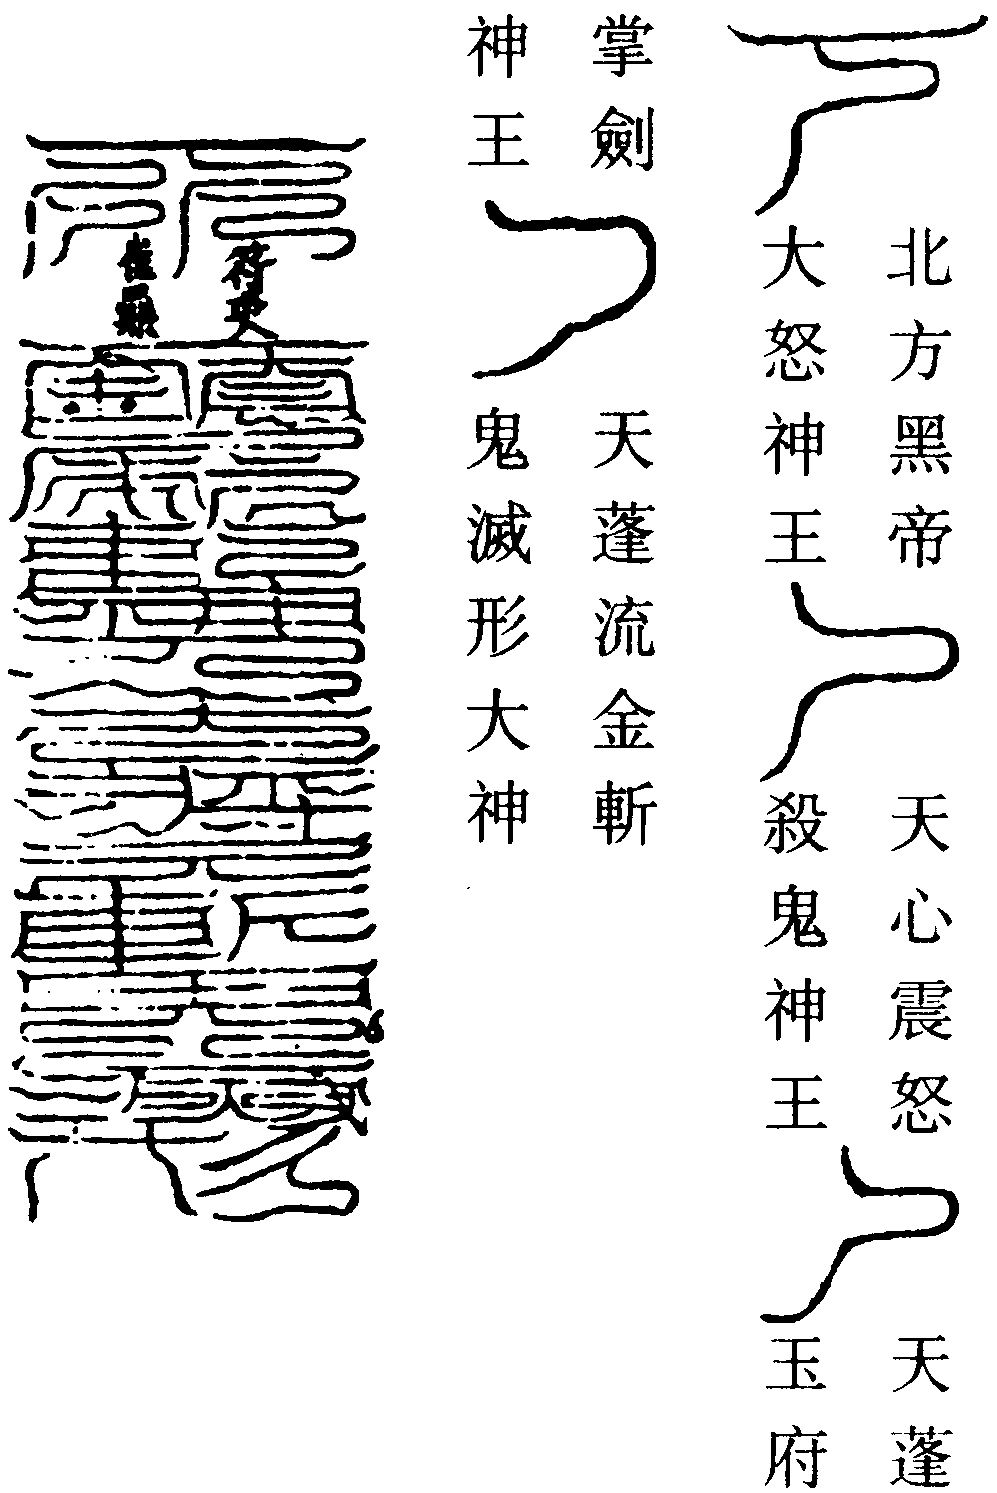 北方黑帝
大怒神王
天心震怒
殺鬼神王
天蓬
玉府
掌劍
神王
天蓬流金斬
鬼滅形大神
符吏